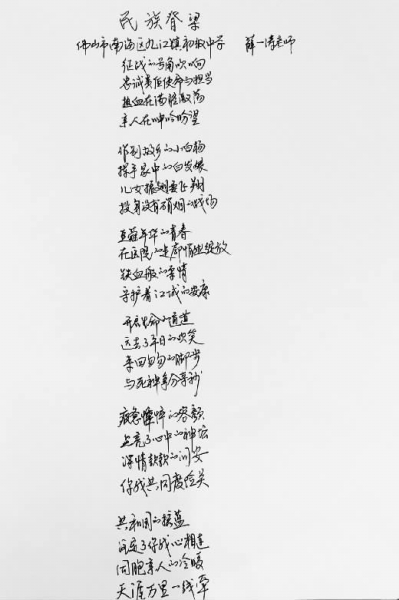 民族脊梁
佛山市南海区九江镇初级中学 薛一涛老师
征战的号角吹响
忠诚责任使命与担当
热血在满腔激荡
亲人在呻吟盼望
作别故乡的小白杨
挥手家中的白发娘
儿女振翅要飞翔
投身没有硝烟的战场
豆蔻年华的青春
在医院的走廊情丝绽放
铁血般的豪情
守护着江城的安康
开启生命的通道
远去了年日的欢笑
来回匆匆的脚步
与死神争分夺秒
疲惫憔悴的容颜
点亮了心中的神坛
深情款款的问安
你我共同度险关
共和国的摇蓝
见证了你我心相连
同胞亲人的冷暖
天涯万里一线牵